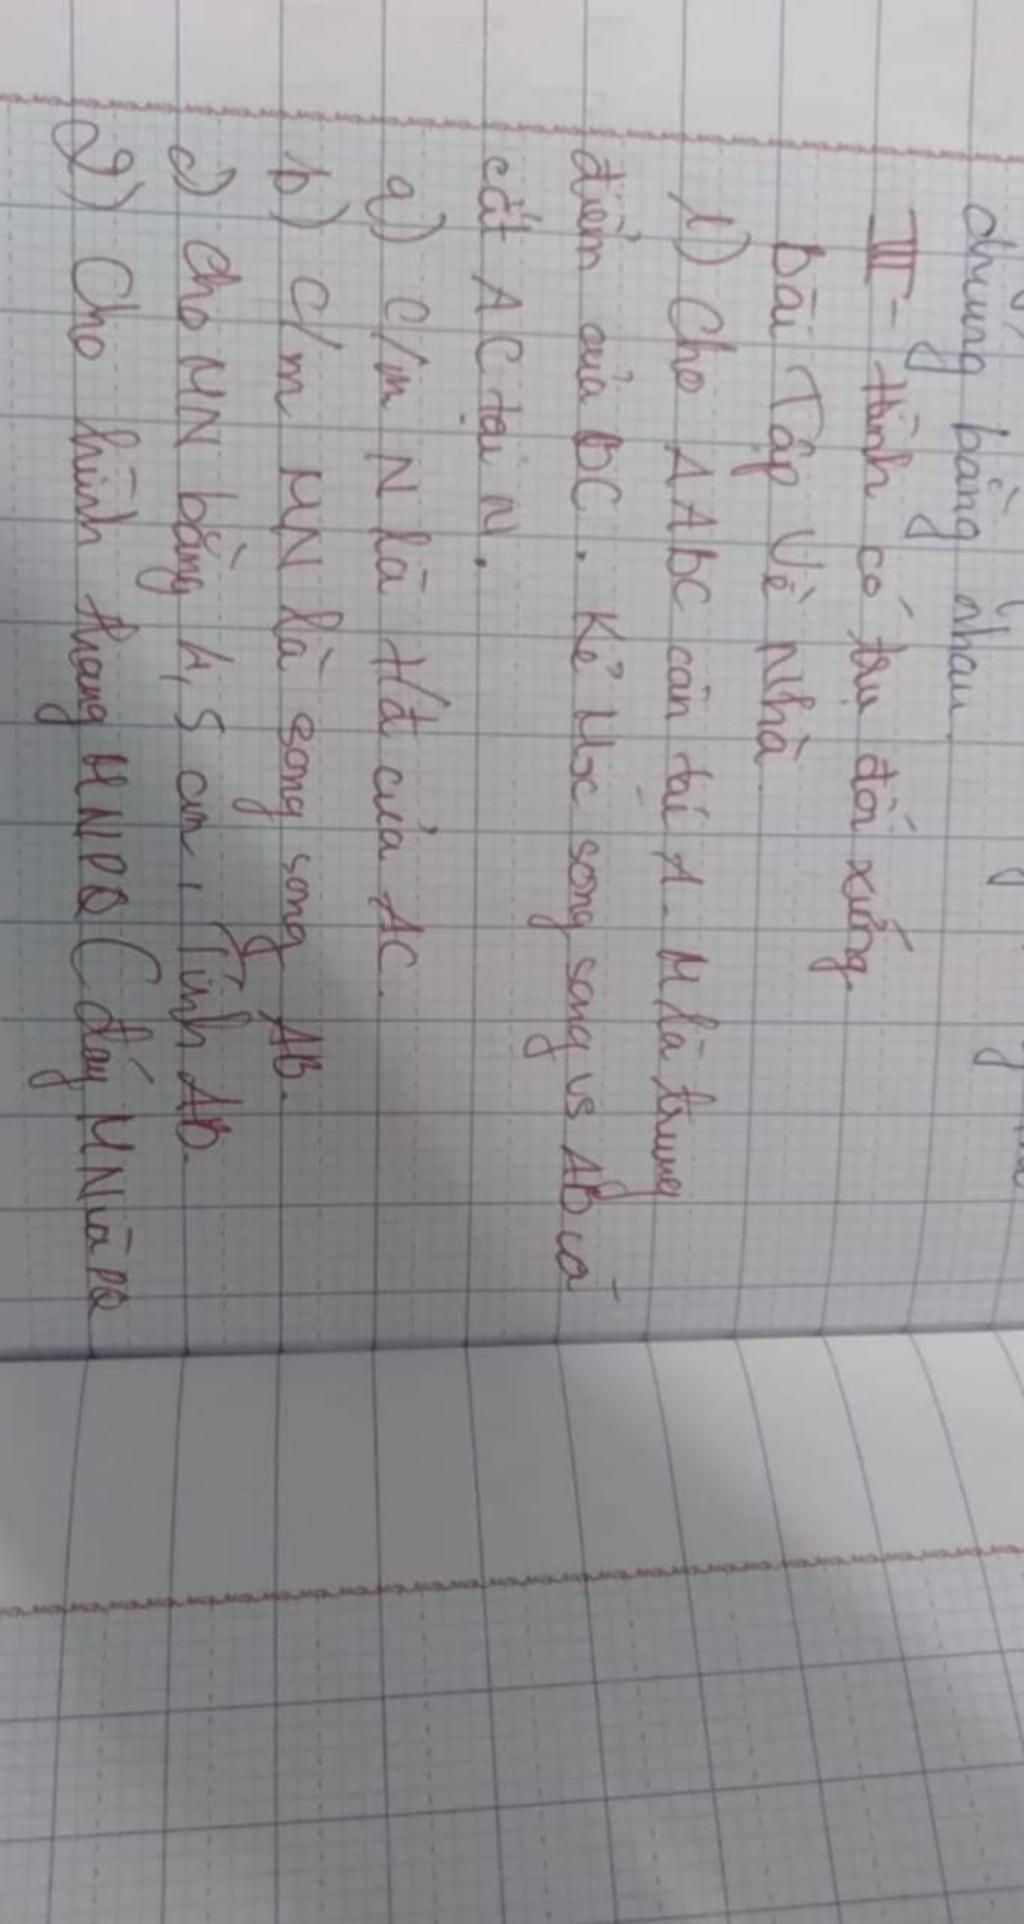 chúng bằng nhau.
III - Hình có trụ đối xứng.
Bài Tập Về Nhà
1) Cho ΔABC cân tại A. M là trung
điểm của BC. Kẻ Mx song song vs AB và
cắt AC tại N.
a) C/m N là t/đ của AC.
b) C/m MN là song song AB.
c) Cho MN bằng 4,5 cm, Tính AB.
2) Cho hình thang MNPQ (đáy MN và PQ